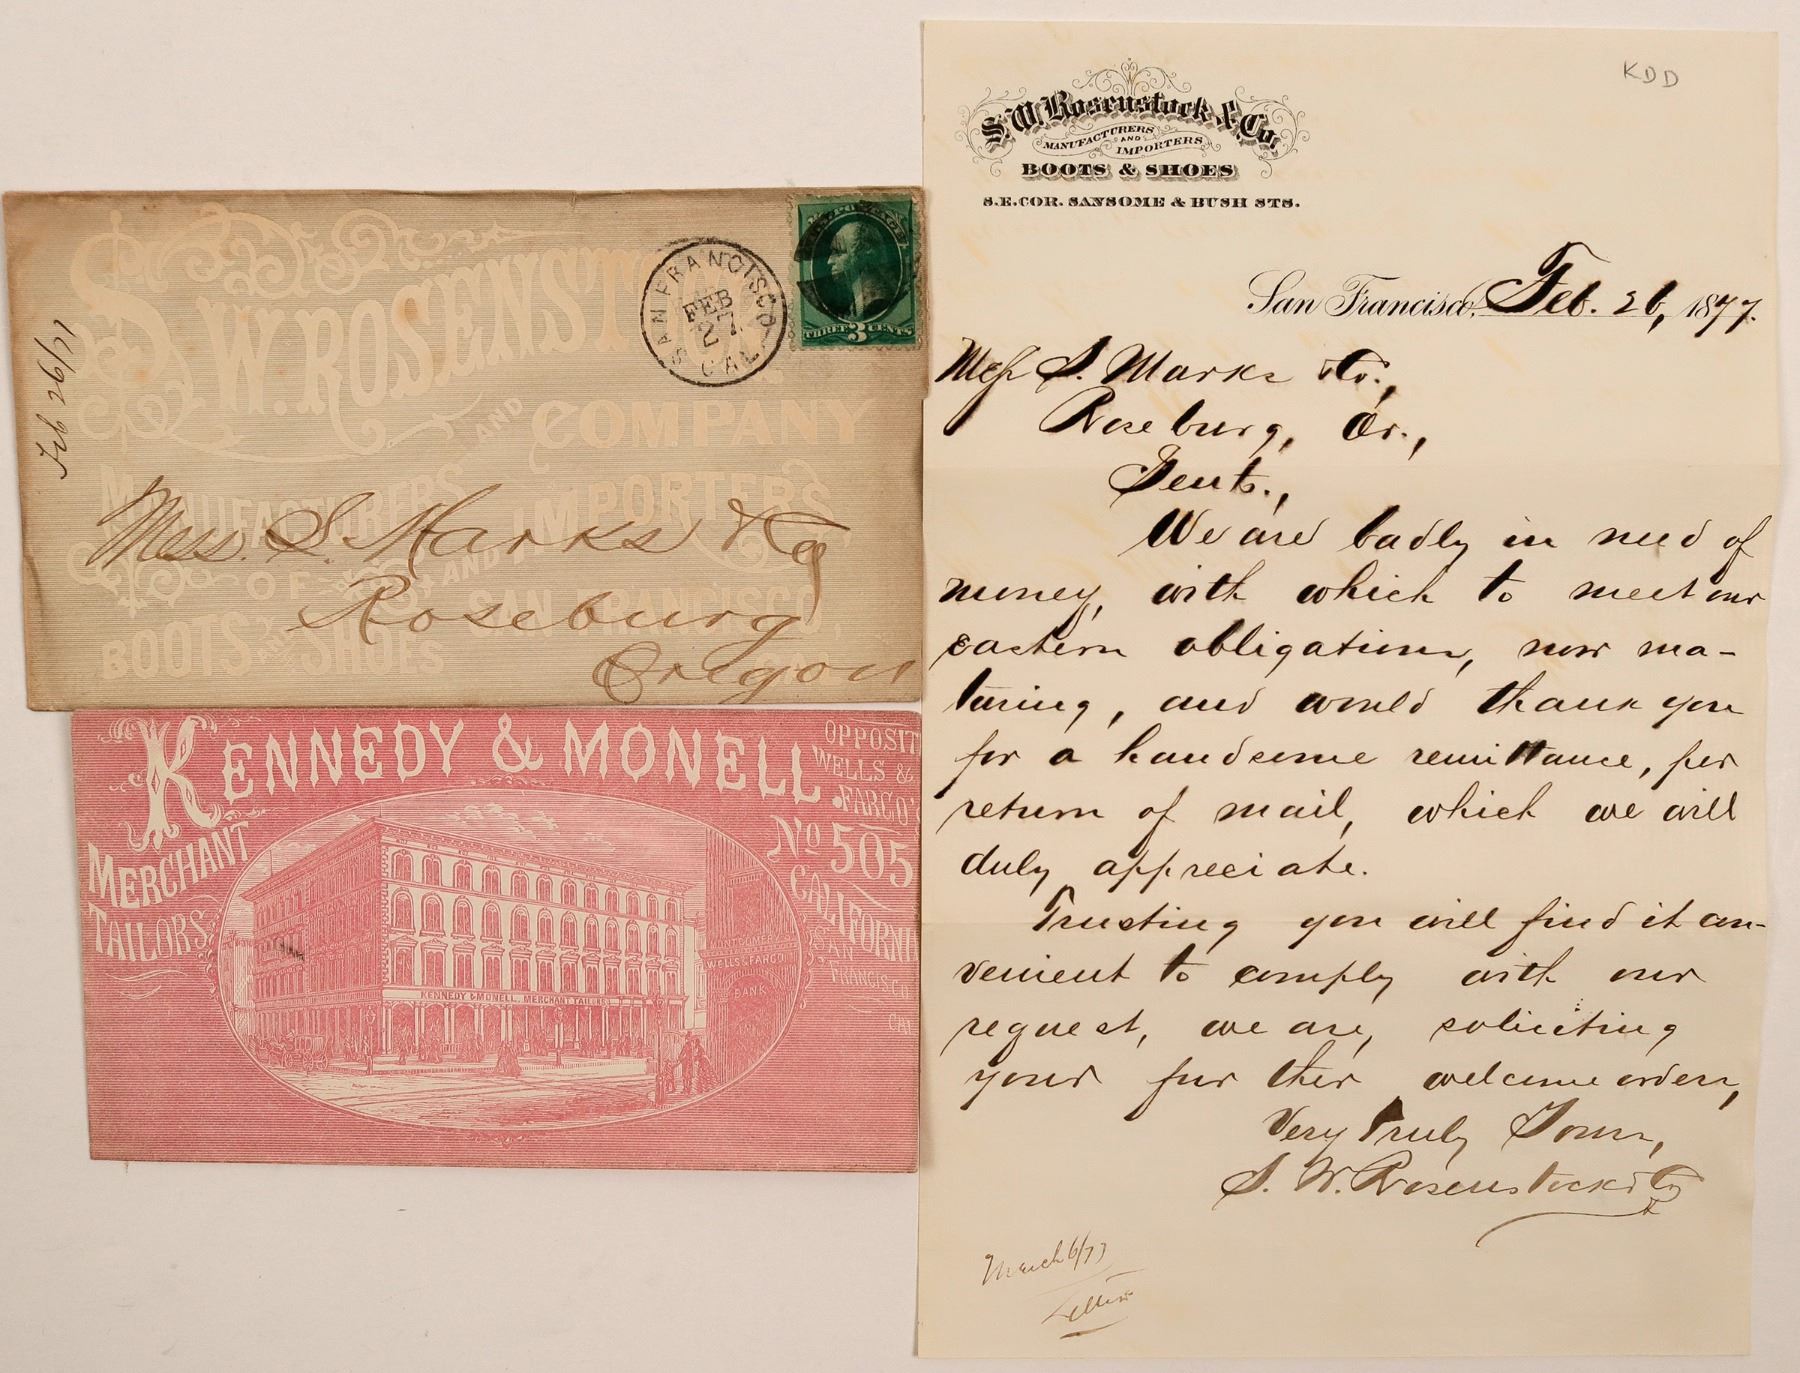 S. W. ROSENST
AND COMPANY
MANUFACTURERS AND IMPORTERS
OF
BOOTS & SHOES
SAN FRANCISCO,
SAN FRANCISCO
FEB
27
CAL.
THREE 3 CENTS
Feb 26/77
Mess. S. Marks & Co
Roseburg
Oregon
KENNEDY & MONELL.
MERCHANT
TAILORS
OPPOSIT
WELLS &
FARGO'
No 505
CALIFORNI
SAN
FRANCISCO
CAL
KENNEDY & MONELL, MERCHANT TAILORS
MONTGOMERY
WELLS & FARGO
BANK
KDD
S. W. Rosenstock & Co.
MANUFACTURERS
AND
IMPORTERS
BOOTS & SHOES
S.E. COR. SANSOME & BUSH STS.
San Francisco, Feb. 26, 1877.
Mess S. Marks & Co.,
Roseburg, Or.,
Gents.,
We are badly in need of
money, with which to meet our
eastern obligations, now ma-
turing, and would thank you
for a handsome remittance, per
return of mail, which we will
duly appreciate.
Trusting you will find it con-
venient to comply with our
request, we are, soliciting
your further welcome orders,
Very Truly Yours,
S. W. Rosenstock & Co
March 6/77